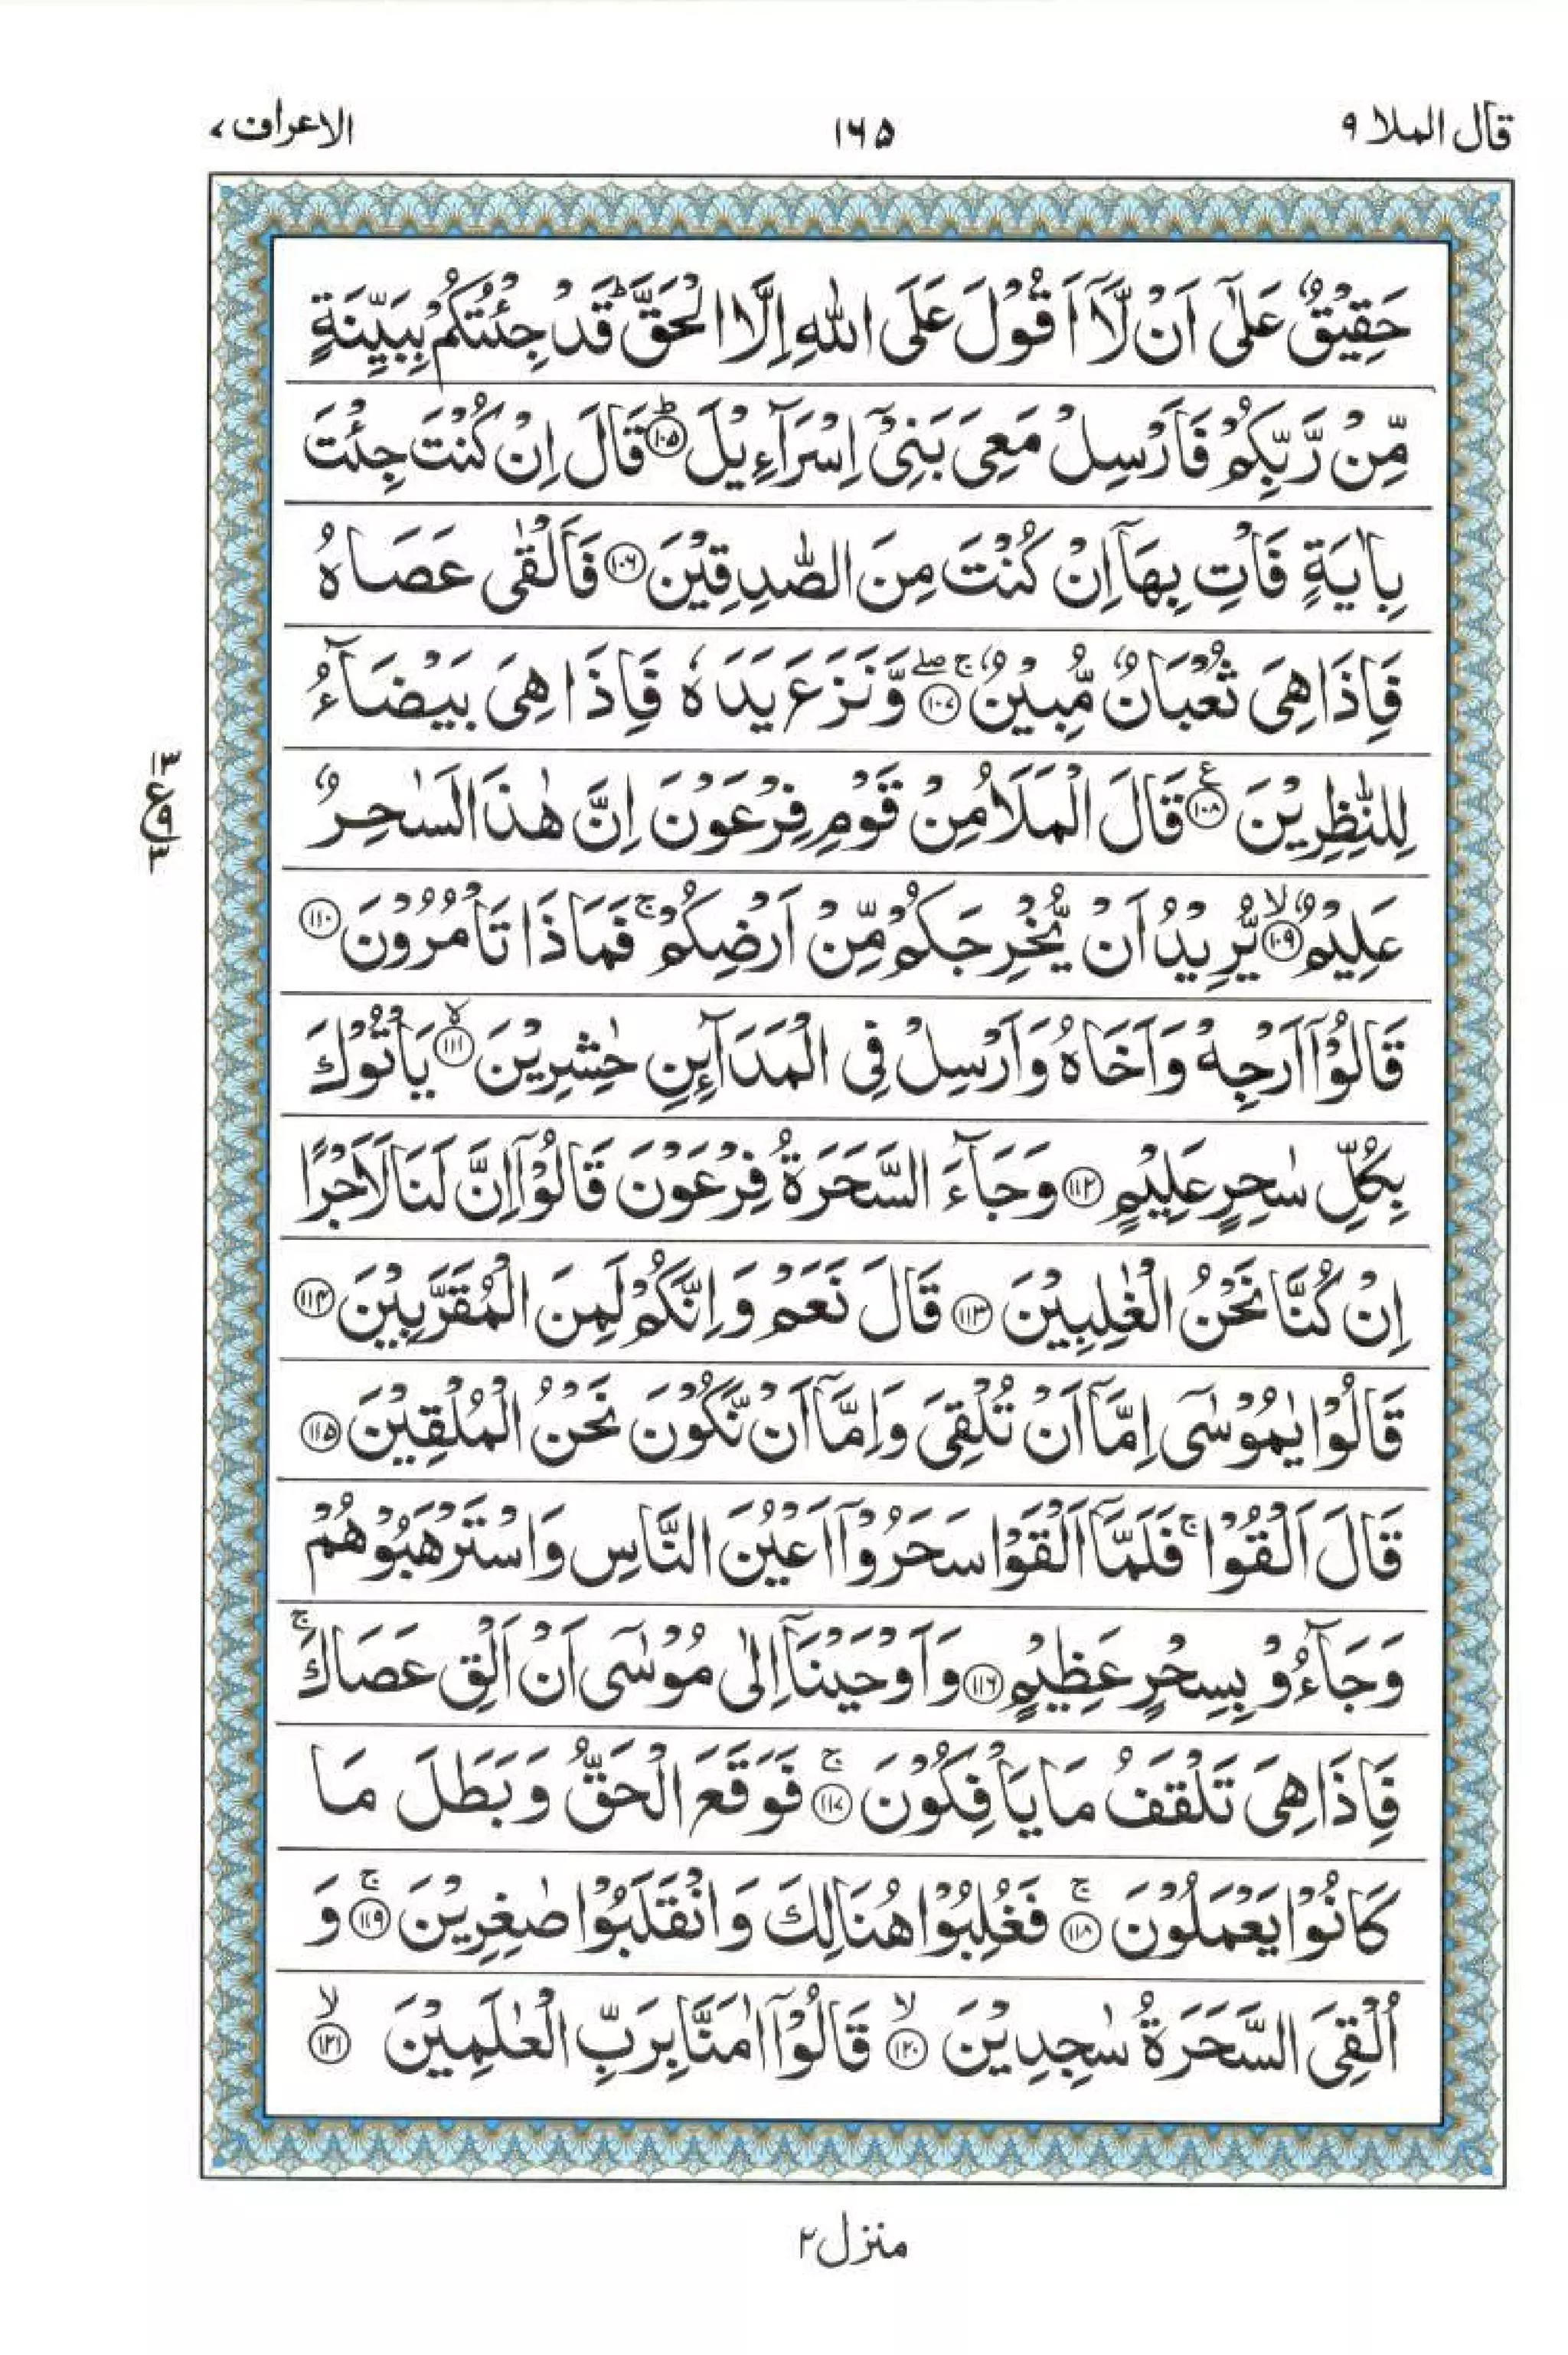 قال الملا ٩
١٦٥
الاعراف ٧
حَقِيْقٌ عَلٰٓى اَنْ لَّاۤ اَقُوْلَ عَلَى اللهِ اِلَّا الْحَقَّ ؕ قَدْ جِئْتُكُمْ بِبَيِّنَةٍ
مِّنْ رَّبِّكُمْ فَاَرْسِلْ مَعِيَ بَنِيْۤ اِسْرَآءِيْلَ ؕ ﴿١٠٥﴾ قَالَ اِنْ كُنْتَ جِئْتَ
بِاٰيَةٍ فَاْتِ بِهَاۤ اِنْ كُنْتَ مِنَ الصّٰدِقِيْنَ ﴿١٠٦﴾ فَاَلْقٰى عَصَاهُ
فَاِذَا هِيَ ثُعْبَانٌ مُّبِيْنٌ ۚۖ ﴿١٠٧﴾ وَّنَزَعَ يَدَهٗ فَاِذَا هِيَ بَيْضَآءُ
لِلنّٰظِرِيْنَ ع ﴿١٠٨﴾ قَالَ الْمَلَاُ مِنْ قَوْمِ فِرْعَوْنَ اِنَّ هٰذَا لَسٰحِرٌ
عَلِيْمٌ ۙ ﴿١٠٩﴾ يُّرِيْدُ اَنْ يُّخْرِجَكُمْ مِّنْ اَرْضِكُمْ ۚ فَمَاذَا تَاْمُرُوْنَ ﴿١١٠﴾
قَالُوْۤا اَرْجِهْ وَاَخَاهُ وَاَرْسِلْ فِى الْمَدَآئِنِ حٰشِرِيْنَ ۙ ﴿١١١﴾ يَاْتُوْكَ
بِكُلِّ سٰحِرٍ عَلِيْمٍ ﴿١١٢﴾ وَجَآءَ السَّحَرَةُ فِرْعَوْنَ قَالُوْۤا اِنَّ لَنَا لَاَجْرًا
اِنْ كُنَّا نَحْنُ الْغٰلِبِيْنَ ﴿١١٣﴾ قَالَ نَعَمْ وَاِنَّكُمْ لَمِنَ الْمُقَرَّبِيْنَ ﴿١١٤﴾
قَالُوْا يٰمُوْسٰٓى اِمَّاۤ اَنْ تُلْقِيَ وَاِمَّاۤ اَنْ نَّكُوْنَ نَحْنُ الْمُلْقِيْنَ ﴿١١٥﴾
قَالَ اَلْقُوْا ۚ فَلَمَّاۤ اَلْقَوْا سَحَرُوْۤا اَعْيُنَ النَّاسِ وَاسْتَرْهَبُوْهُمْ
وَجَآءُوْ بِسِحْرٍ عَظِيْمٍ ﴿١١٦﴾ وَاَوْحَيْنَاۤ اِلٰى مُوْسٰٓى اَنْ اَلْقِ عَصَاكَ ۚ
فَاِذَا هِيَ تَلْقَفُ مَا يَاْفِكُوْنَ ۚ ﴿١١٧﴾ فَوَقَعَ الْحَقُّ وَبَطَلَ مَا
كَانُوْا يَعْمَلُوْنَ ۚ ﴿١١٨﴾ فَغُلِبُوْا هُنَالِكَ وَانْقَلَبُوْا صٰغِرِيْنَ ۚ ﴿١١٩﴾ وَ
اُلْقِيَ السَّحَرَةُ سٰجِدِيْنَ ۙ ﴿١٢٠﴾ قَالُوْۤا اٰمَنَّا بِرَبِّ الْعٰلَمِيْنَ ۙ ﴿١٢١﴾
٣
ع ٩
٣
منزل ٢